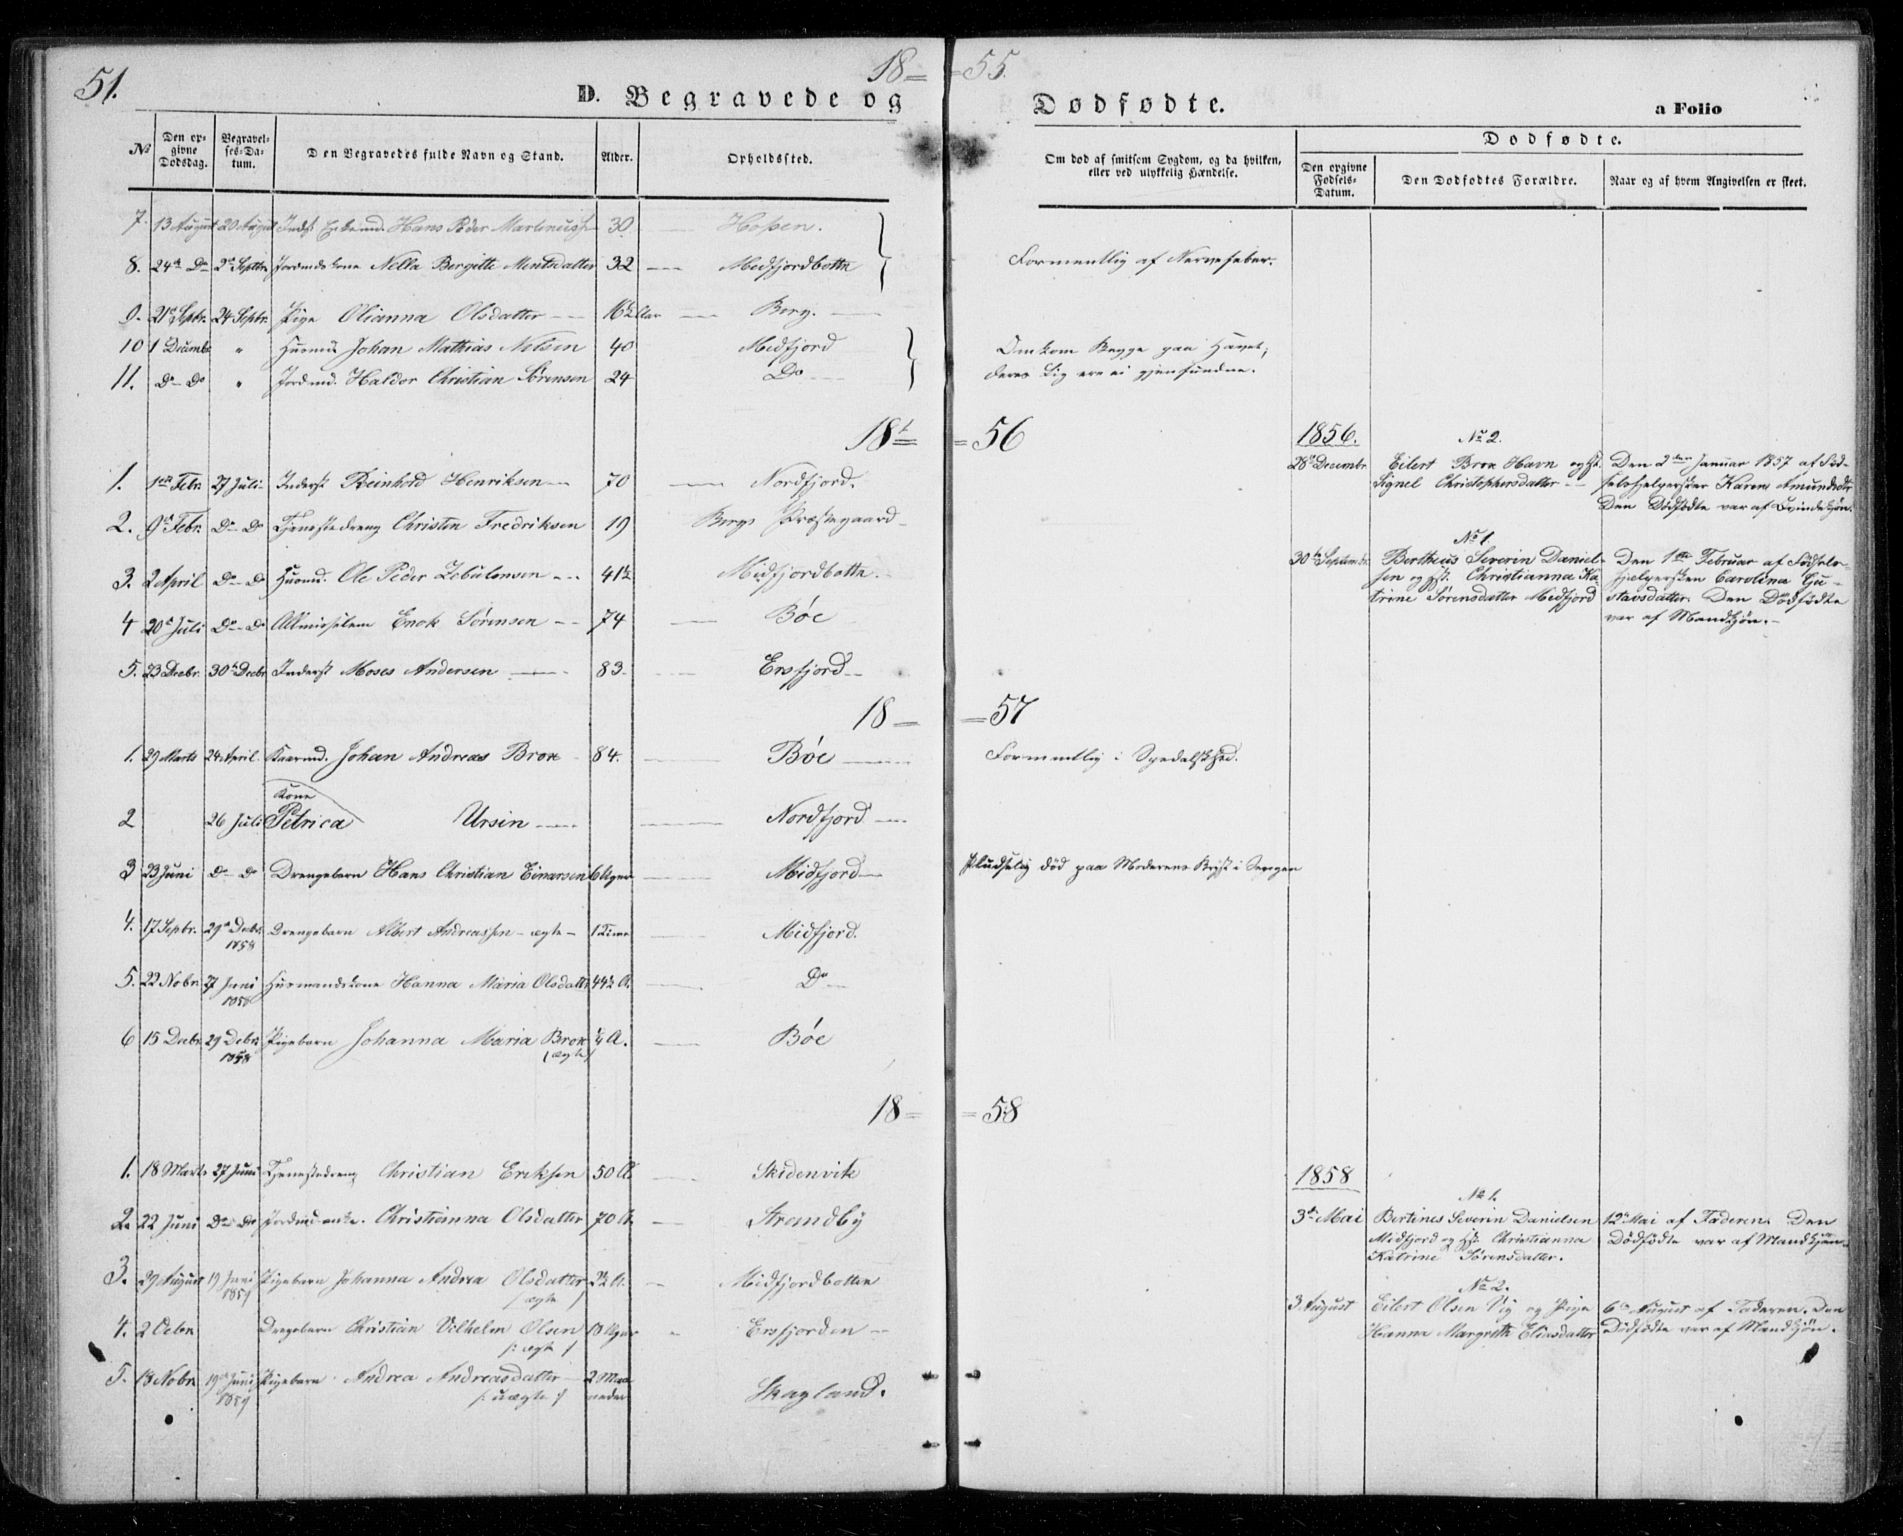 51.
18 = = 55.
D. Begravede og Dødfødte. a Folio
No
Den op-
givne
Dødsdag.
Begravel-
ses-Da-
tum.
Den Begravedes fulde Navn og Stand.
Alder.
Opholdssted.
Om død af smitsom Sygdom, og da hvilken,
eller ved ulykkelig Hændelse.
Dødfødte.
Den opgivne
Fødsels-
Datum.
Den Dødfødtes Forældre.
Naar og af hvem Angivelsen er skeet.
7. 13 August 20 August Inderst Hans Peder Martinussen 30. Hopen.
8. 24de Do 2den Septbr. Jordmdskone Nella Bergitte Mentsdatter 32 Midfjordbotn Formentlig af Nervefeber.
9. 21de Septbr. 24 Septbr. Pige Olianna Olsdatter 16½ Aar Berg.
10 1 Decembr. " Huusmd. Johan Mathias Nilsen 40 Midfjord Omkom Begge paa Havet;
11. Do Do " Jordmd. Haldor Christian Sørensen 24 Do deres Lig ere ei gjenfundne.
18 = = 56
1. 1ste Febr. 27 Juli Inderst Reinhold Henriksen 70 Nordfjord.
2. 9de Febr. Do Do Tjenestedreng Christen Fredriksen 19 Bergs Præstegaard
3. 2 April Do Do Huusmd. Ole Peder Zebulonsen 41½ Midfjordbotn.
4 20de Juli Do Do Almisselem Enok Sørensen 74 Bøe
5. 23 Decbr. 30te Decbr. Inderst Moses Andersen 83. Ersfjord
1856.
No 2.
28de Decembr. Eilert Brox Havn og Hst. Den 2den Januar 1857 af Fød-
Signel Christophersdatter selshjelpersken Karen Amundsdtr
Den Dødfødte var af Qvindekjøn.
No 1.
30te Septembr. Bertheus Severin Daniel- Den 1ste Februar af Fødsels-
sen og Hst. Christianna Ka- hjelpersken Carolina Gu-
trine Sørensdatter Midfjord stavsdatter. Den Dødfødte
var af Mandkjøn.
18 = = 57
1. 29 Marts 24 April Kaarmd. Johan Andreas Brox 84. Bøe Formentlig i Spedalskhed.
Kone
2 26 Juli Petrica Ursin Nordfjord
3 23 Juni Do Do Drengebarn Hans Christian Einarsen 6 Uger Midfjord Pludselig død paa Moderens Bryst i Sengen
4. 17 Sepbr. 29de Decbr. Drengebarn Albert Andreassen - ægte 1 Time Midfjord.
1858
5. 22 Nobr. 27 Juni Huusmandskone Hanna Maria Olsdatter 44½ A. Do
1858
6 15 Decbr. 29 Debr. Pigebarn Johanna Maria Brox ¼ A. Bøe
1858 (ægte)
18 = = 58
1. 18 Marts 27 Juni Tjenestedreng Christian Eriksen 50 A. Skidenvik
2. 22 Juni Do Do Jordmd.enke. Christianna Olsdatter 70 A. Strandby
3. 29 August 19 Juni Pigebarn Johanna Andrea Olsdatter 2½ A. Midfjordbotten
1859 /: ægte :/
4. 2 Octbr. Drengebarn Christian Vilhelm Olsen 18 Uger Ersfjorden
/: ægte :/
5. 13 Nobr. 19de Juni Pigebarn Andrea Andreasdatter 2 Maa- Skagland.
1859 /: uægte :/ neder
1858
No 1.
3de Mai Bertines Severin Danielsen 12te Mai af Faderen. Den
Midfjord og Hst. Christianna Dødfødte var af Mandkjøn.
Katrine Sørensdatter.
No 2.
3 August Eilert Olsen Vig og Pige 6te August af Faderen. Den
Hanna Margrethe Eliasdatter Dødfødte var af Mandkjøn.